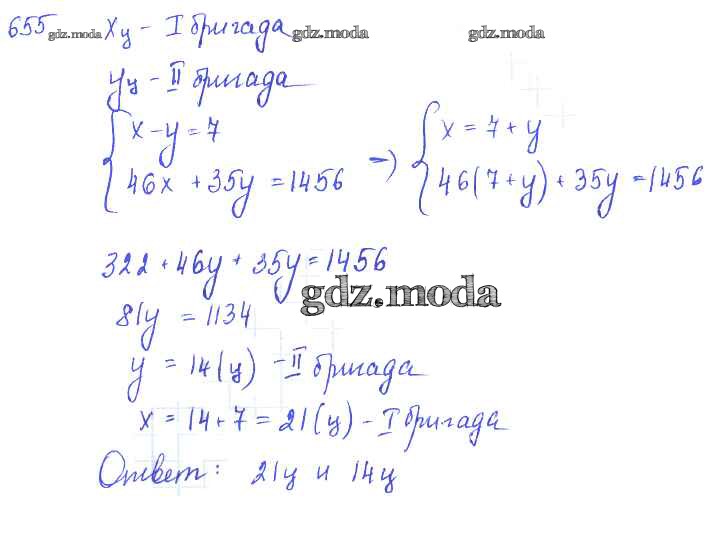 655 gdz.moda xц - I бригада gdz.moda gdz.moda
yц - II бригада
{ x - y = 7
46x + 35y = 1456 => { x = 7 + y
46(7 + y) + 35y = 1456
322 + 46y + 35y = 1456
gdz.moda
81y = 1134
y = 14(ц) - II бригада
x = 14 + 7 = 21(ц) - I бригада
Ответ: 21ц и 14ц